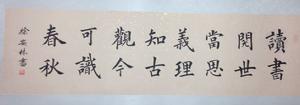 讀書
閱世
當思
義理
知古
觀今
可識
春秋
徐安林書